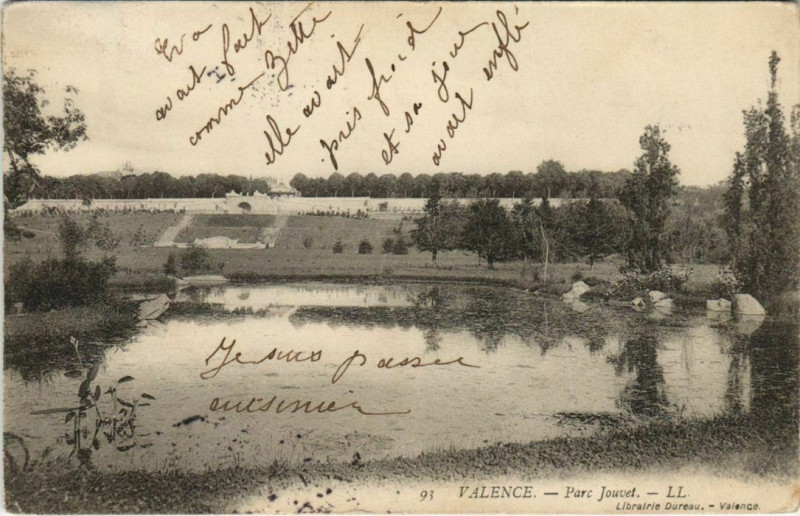 Eva
avait fait
comme Zette
elle avait
pris froid
et sa joue
avait enflé
Je suis passée
cuisinier
93 VALENCE. — Parc Jouvet. — LL.
Librairie Dureau. - Valence.